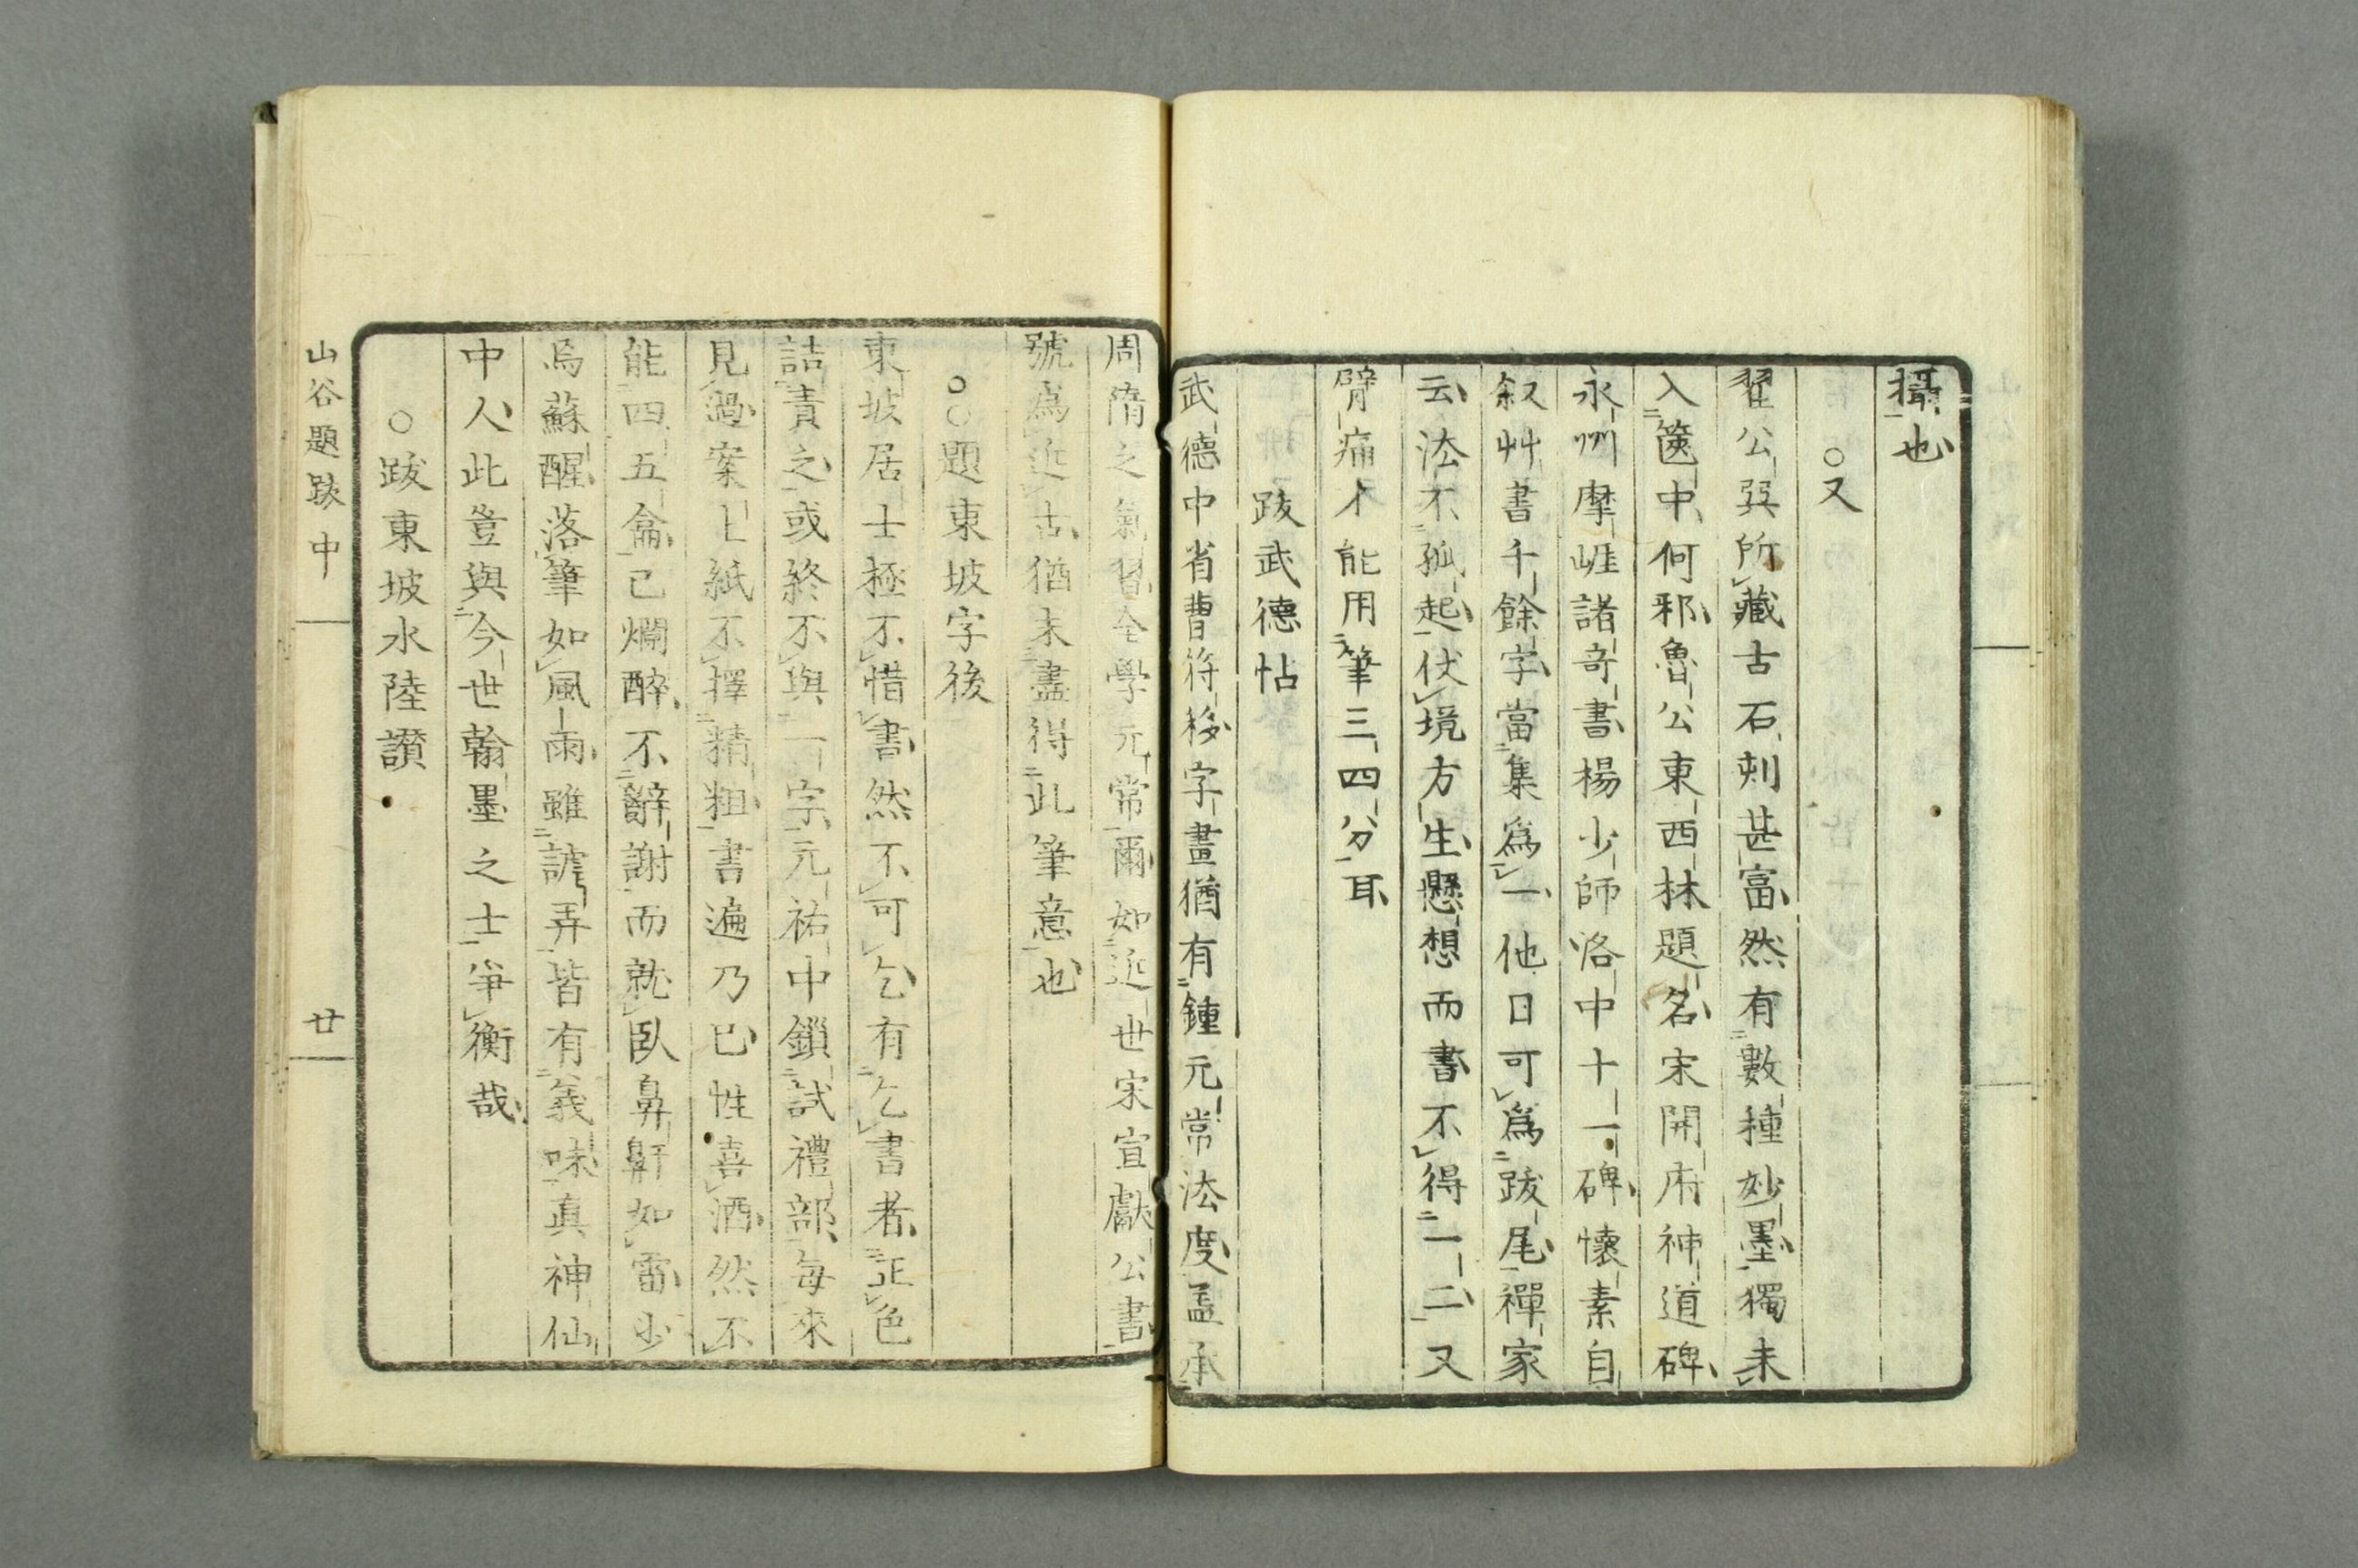 攝也
○又
翟公巽所藏古石刻甚富然有數種妙墨獨未
入篋中何邪魯公東西林題名宋開府神道碑
永州摩崕諸竒書楊少師洛中十一碑懷素自
叙艸書千餘字當集爲一他日可爲跋尾禪家
云法不孤起伏境方生懸想而書不得一二又
臂痛不能用筆三四分耳
跋武德帖
武德中省曹符移字畫猶有鍾元常法度盖承
周隋之氣習全學元常爾如近世宋宣獻公書
號爲近古猶未盡得此筆意也
○○題東坡字後
東坡居士極不惜書然不可乞有乞書者正色
詰責之或終不與一字元祐中鎖試禮部每來
見過案上紙不擇精粗書遍乃已性喜酒然不
能四五龠已爛醉不辭謝而就臥鼻鼾如雷少
焉蘇醒落筆如風雨雖謔弄皆有義味真神仙
中人此豈與今世翰墨之士爭衡哉
○跋東坡水陸讃
山谷題跋中
廿